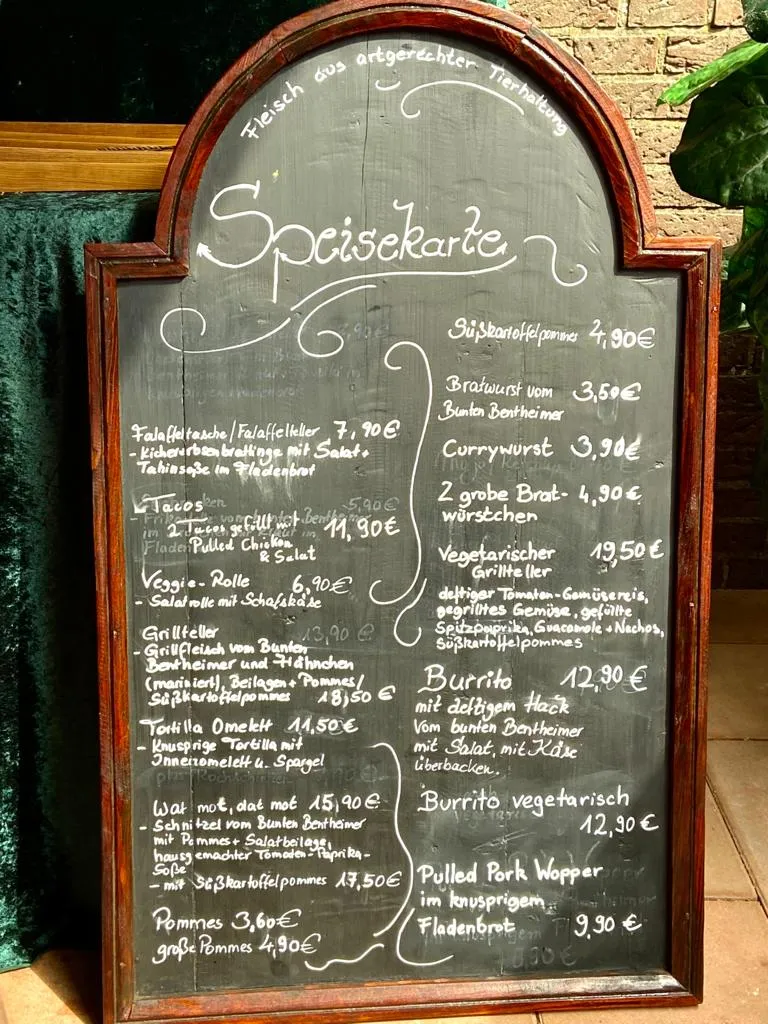 Fleisch aus artgerechter Tierhaltung
Speisekarte
Falaffeltasche/Falaffelteller 7,90€
- Kichererbsenbratlinge mit Salat+
Tahinsoße im Fladenbrot
- Tacos
2 Tacos gefüllt mit 11,90€
Pulled Chicken
& Salat
Veggie-Rolle 6,90€
- Salatrolle mit Schafskäse
Grillteller
- Grillfleisch vom Bunten
Bentheimer und Hähnchen
(mariniert), Beilagen+Pommes/
Süßkartoffelpommes 18,50€
Tortilla Omelett 11,50€
- Knusprige Tortilla mit
Innenomelett u. Spargel
Wat mot, dat mot 15,90€
- Schnitzel vom Bunten Bentheimer
mit Pommes+Salatbeilage,
hausgemachter Tomaten-Paprika-
Soße
- mit Süßkartoffelpommes 17,50€
Pommes 3,60€
große Pommes 4,90€
Süßkartoffelpommes 4,90€
Bratwurst vom 3,50€
Bunten Bentheimer
Currywurst 3,90€
2 grobe Brat- 4,90€
würstchen
Vegetarischer 19,50€
Grillteller
deftiger Tomaten-Gemüsereis,
gegrilltes Gemüse, gefüllte
Spitzpaprika, Guacamole+Nachos,
Süßkartoffelpommes
Burrito 12,90€
mit deftigem Hack
vom bunten Bentheimer
mit Salat, mit Käse
überbacken.
Burrito vegetarisch
12,90€
Pulled Pork Wopper
im knusprigem
Fladenbrot 9,90€